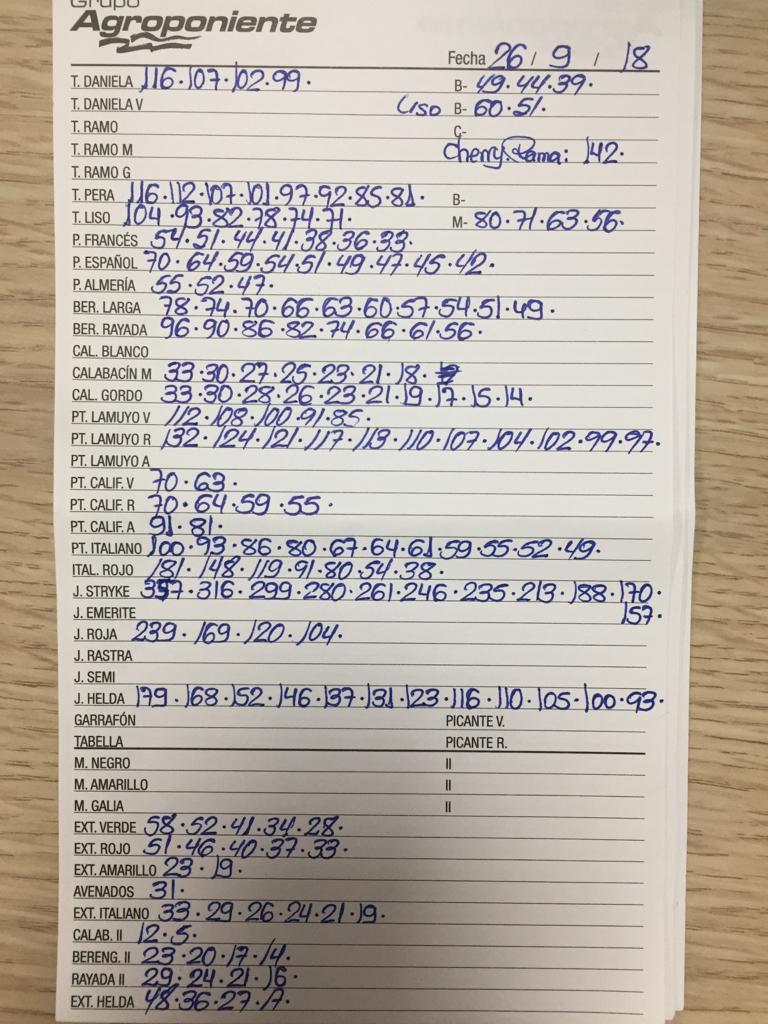 Grupo
Agroponiente
Fecha 26 / 9 / 18
T. DANIELA 116·107·102·99· B- 49·44·39·
T. DANIELA V Liso B- 60·51·
T. RAMO C-
T. RAMO M Cherry Rama: 142·
T. RAMO G
T. PERA 116·112·107·101·97·92·85·81· B-
T. LISO 104·93·82·78·74·71· M- 80·71·63·56·
P. FRANCÉS 54·51·44·41·38·36·33·
P. ESPAÑOL 70·64·59·54·51·49·47·45·42·
P. ALMERÍA 55·52·47·
BER. LARGA 78·74·70·66·63·60·57·54·51·49·
BER. RAYADA 96·90·86·82·74·66·61·56·
CAL. BLANCO
CALABACÍN M 33·30·27·25·23·21·18·
CAL. GORDO 33·30·28·26·23·21·19·17·15·14·
PT. LAMUYO V 112·108·100·91·85·
PT. LAMUYO R 132·124·121·117·113·110·107·104·102·99·97·
PT. LAMUYO A
PT. CALIF. V 70·63·
PT. CALIF. R 70·64·59·55·
PT. CALIF. A 91·81·
PT. ITALIANO 100·93·86·80·67·64·61·59·55·52·49·
ITAL. ROJO 181·148·119·91·80·54·38·
J. STRYKE 357·316·299·280·261·246·235·213·188·170·
J. EMERITE 157·
J. ROJA 239·169·120·104·
J. RASTRA
J. SEMI
J. HELDA 179·168·152·146·137·131·123·116·110·105·100·93·
GARRAFÓN PICANTE V.
TABELLA PICANTE R.
M. NEGRO II
M. AMARILLO II
M. GALIA II
EXT. VERDE 58·52·41·34·28·
EXT. ROJO 51·46·40·37·33·
EXT. AMARILLO 23·19·
AVENADOS 31·
EXT. ITALIANO 33·29·26·24·21·19·
CALAB. II 12·5·
BERENG. II 23·20·17·14·
RAYADA II 29·24·21·16·
EXT. HELDA 48·36·27·17·